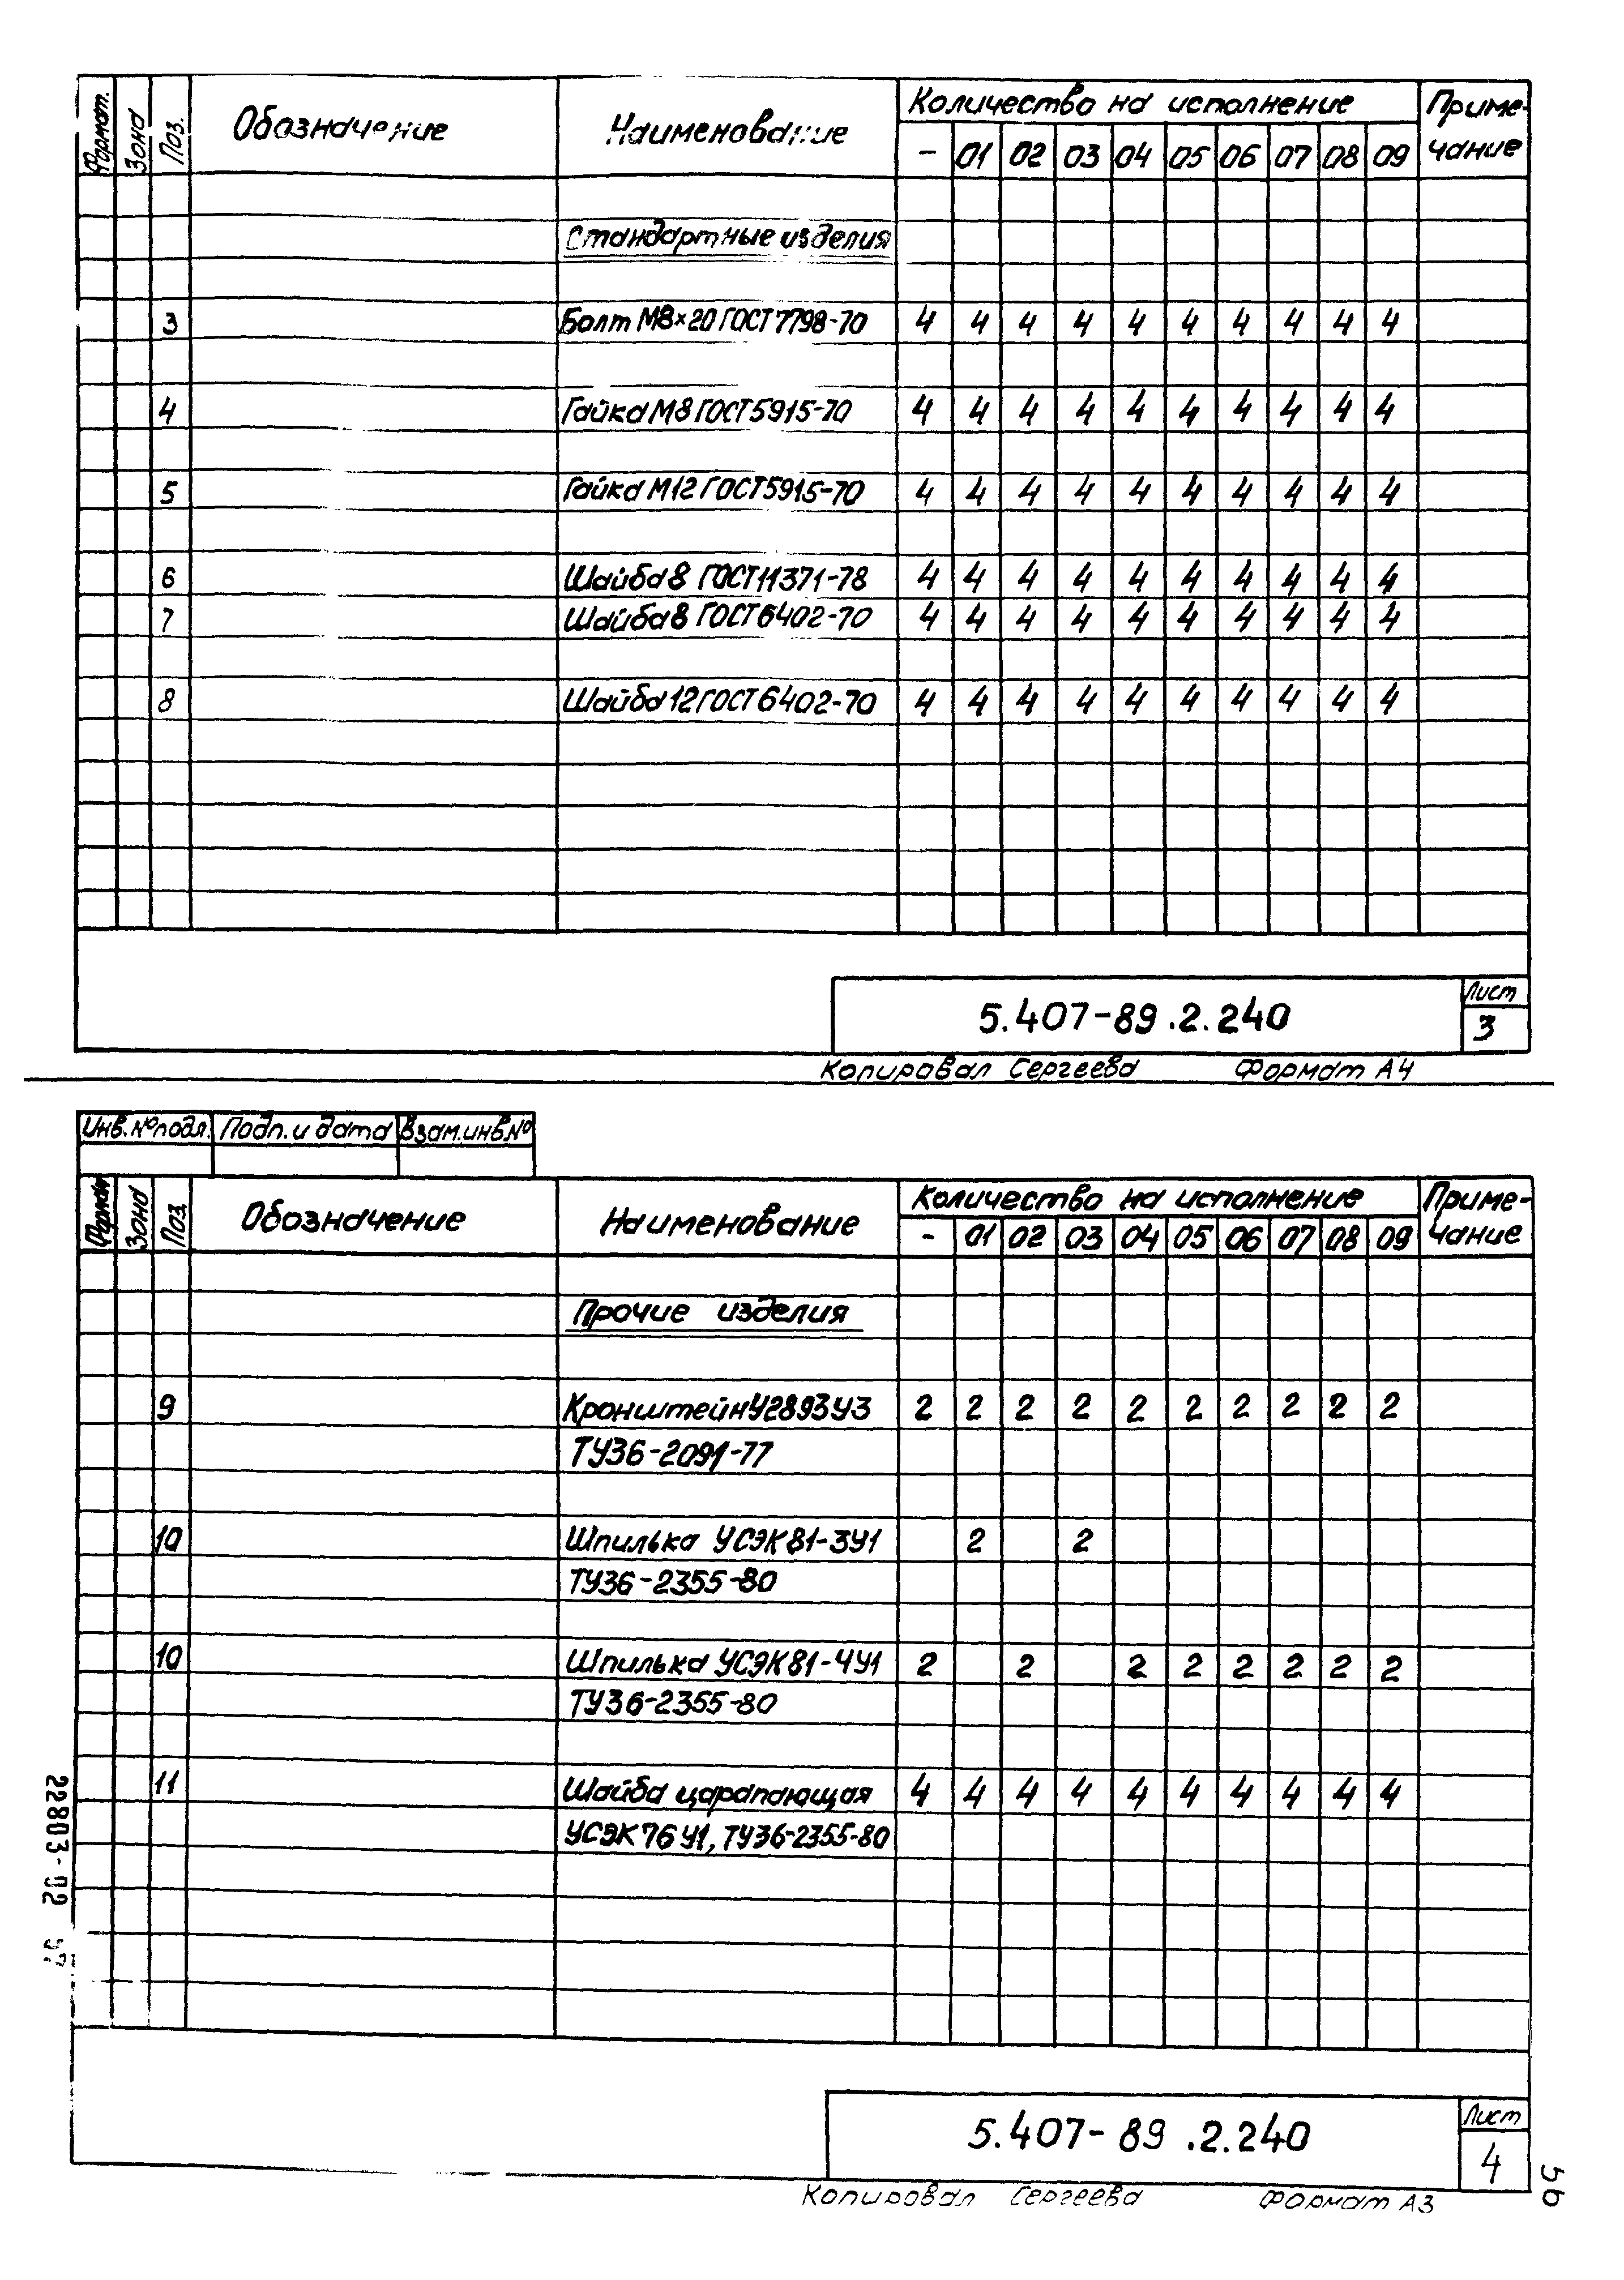 Формат. Зона Поз. Обозначение Наименование Количество на исполнение Приме-чание
- 01 02 03 04 05 06 07 08 09
Стандартные изделия
3 Болт М8×20 ГОСТ 7798-70 4 4 4 4 4 4 4 4 4 4
4 Гайка М8 ГОСТ 5915-70 4 4 4 4 4 4 4 4 4 4
5 Гайка М12 ГОСТ 5915-70 4 4 4 4 4 4 4 4 4 4
6 Шайба 8 ГОСТ 11371-78 4 4 4 4 4 4 4 4 4 4
7 Шайба 8 ГОСТ 6402-70 4 4 4 4 4 4 4 4 4 4
8 Шайба 12 ГОСТ 6402-70 4 4 4 4 4 4 4 4 4 4
5.407-89.2.240 Лист
3
Копировал Сергеева Формат А4
Инв. № подл. Подп. и дата Взам. инв. №
Формат Зона Поз. Обозначение Наименование Количество на исполнение Приме-чание
- 01 02 03 04 05 06 07 08 09
Прочие изделия
9 Кронштейн У2893 У3 2 2 2 2 2 2 2 2 2 2
ТУ36-2091-77
10 Шпилька УСЭК 81-3У1 2 2
ТУ36-2355-80
10 Шпилька УСЭК 81-4У1 2 2 2 2 2 2 2 2
ТУ36-2355-80
11 Шайба царапающая 4 4 4 4 4 4 4 4 4 4
УСЭК 76 У1, ТУ36-2355-80
5.407-89.2.240 Лист
4
Копировал Сергеева Формат А3
22803-02
56